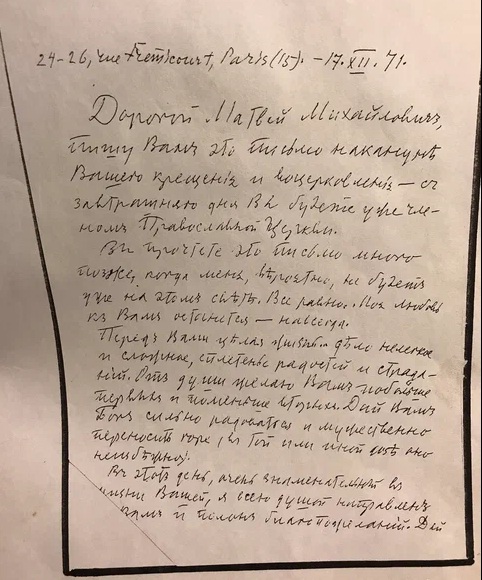 24-26, rue Fremicourt, Paris (15). – 17. XII. 71.
Дорогой Матвей Михайловичъ,
пишу Вамъ это письмо наканунѣ
Вашего крещенія и воцерковленія – съ
завтрашняго дня Вы будете уже чле-
номъ Православной Церкви.
Вы прочтете это письмо много
позже, когда меня, вѣроятно, не будетъ
уже на этомъ свѣтѣ. Все равно. Моя любовь
къ Вамъ останется – навсегда.
Передъ Вами цѣлая жизнь – дѣло нелегкое
и сложное, сплетенье радостей и страда-
ній. Отъ души желаю Вамъ побольше
первыхъ и поменьше вторыхъ. Дай Вамъ
Богъ сильно радоваться и мужественно
переносить горе, въ той или иной дозѣ оно
неизбѣжно.
Въ этотъ день, очень знаменательный въ
жизни Вашей, я всею душой направленъ
Вамъ и полонъ благопожеланій. Дай